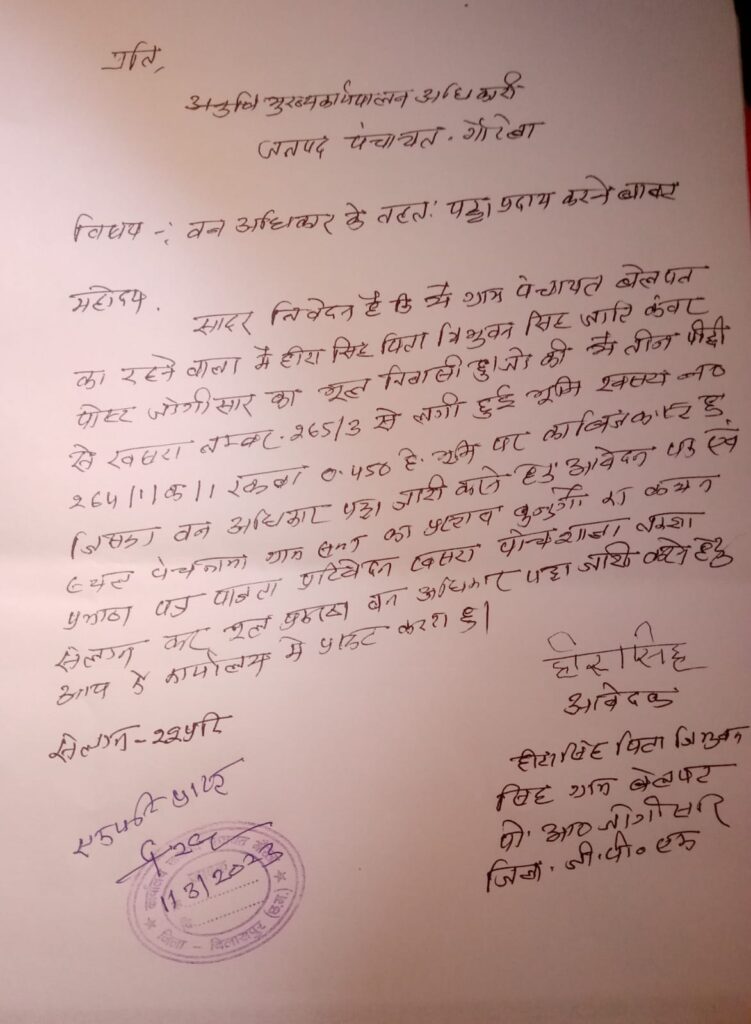 प्रति,
मुख्यकार्यपालन अधिकारी
जनपद पंचायत. गौरेला
विषय -: वन अधिकार के तहत: पट्टा प्रदाय करने बाबत
महोदय.
सादर निवेदन है कि मैं ग्राम पंचायत बेलपत
का रहने वाला मैं हीरा सिंह पिता त्रिभुवन सिंह जाति कंवर
पोस्ट जोगीसार का मूल निवासी हु। जो की मैं तीन पीढी
से खसरा नम्बर. 265/3 से लगी हुई भूमि खसरा न०
264/1/क/1 रकबा 0.450 हे. भूमि पर काबिज हु
जिसका वन अधिकार पट्टा जारी करने हेतु आवेदन पत्र एवं
स्थल पंचनामा ग्राम सभा का प्रस्ताव बुजुर्गो का कथन
प्रमाण पत्र पात्रता प्रतिवेदन खसरा पांचशाला नक्शा
संलग्न कर मूल प्रकरण वन अधिकार पट्टा जारी करने हेतु
आप के कार्यालय में प्रस्तुत करता हु।
हीरासिंह
आवेदक
संलग्न -
हीरासिंह पिता त्रिभुवन
सिंह ग्राम बेलपत
पो. जोगीसार
जिला. जी. पी. एम
एक प्रति प्राप्त
11/3/2023
जिला - बिलासपुर (छ.ग.)